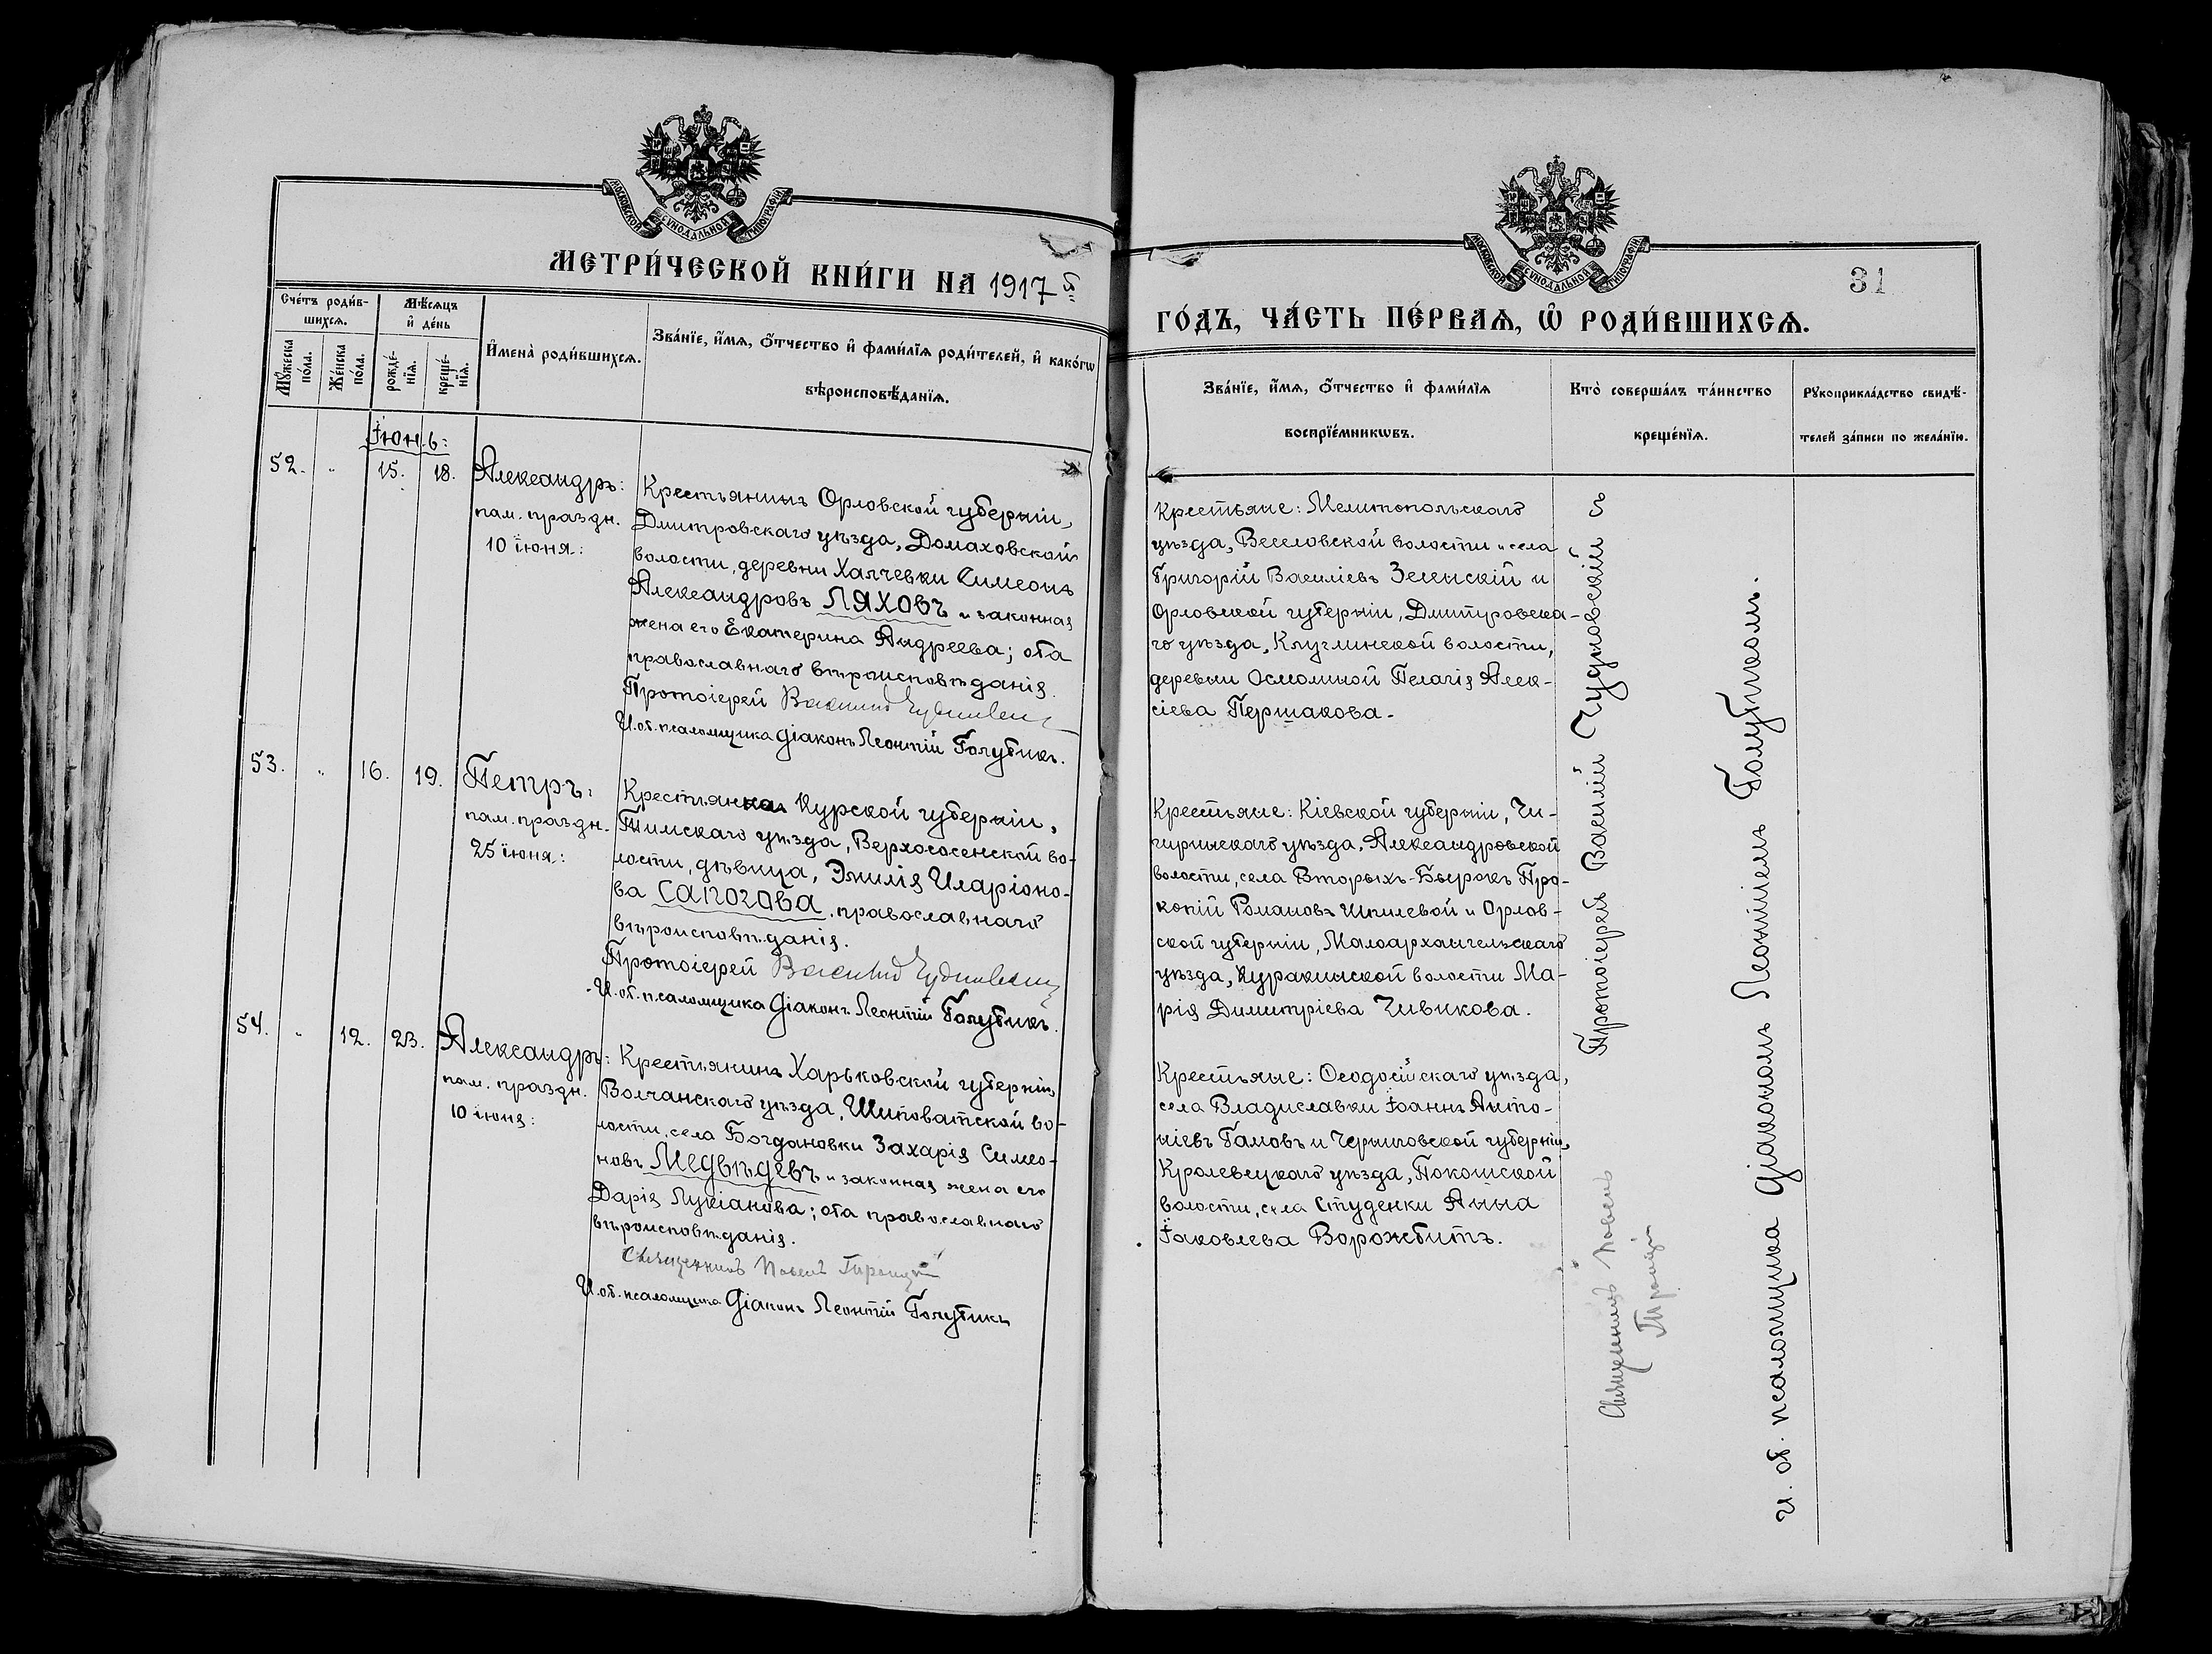 МОСКОВСКОЙ СУНОДАЛЬНОЙ ТИПОГРАФІИ
МЕТРИ́ЧЕСКОЙ КНИ́ГИ НА 1917 й
Сче́тъ роди́в-
шихсѧ.
Мꙋ́жеска по́ла.
Же́нска по́ла.
Мѣ́сѧцъ
и҆ де́нь
рожде́-
нїѧ.
креще́-
нїѧ.
И҆мена̀ роди́вшихсѧ.
Зва́нїе, и҆́мѧ, ѻ҆́тчество и҆ фами́лїѧ роди́телей, и҆ како́гѡ
вѣроисповѣ́данїѧ.
Іюнь:
52. " 15. 18.
Александръ:
пам. праздн.
10 іюня:
Крестьянинъ Орловской губерніи,
Дмитровскаго уѣзда, Домаховской
волости, деревни Халчевки Симеонъ
Александровъ Ляховъ и законная
жена его Екатерина Андреева; оба
православнаго вѣроисповѣданія.
Протоіерей Василій Чудновскій
И. об. псаломщика діаконъ Леонтій Голубикъ.
53. " 16. 19.
Петръ:
пам. праздн.
25 іюня:
Крестьянка Курской губерніи,
Тимскаго уѣзда, Верхососенской во-
лости, дѣвица, Эмилія Иларіоно-
ва Сапогова, православнаго
вѣроисповѣданія.
Протоіерей Василій Чудновскій
И. об. псаломщика діаконъ Леонтій Голубикъ.
54. " 12. 23.
Александръ:
пам. праздн.
10 іюня:
Крестьянинъ Харьковской губерніи,
Волчанскаго уѣзда, Шиповатской во-
лости, села Богдановки Захарія Симео-
новъ Медвѣдевъ и законная жена его
Дарія Лукіанова; оба православнаго
вѣроисповѣданія.
Священникъ Павелъ Троицкій
И. об. псаломщика діаконъ Леонтій Голубикъ
МОСКОВСКОЙ СУНОДАЛЬНОЙ ТИПОГРАФІИ
31
ГО́ДЪ, ЧА́СТЬ ПЕ́РВАѦ, Ѡ҆ РОДИ́ВШИХСѦ.
Зва́нїе, и҆́мѧ, ѻ҆́тчество и҆ фами́лїѧ
воспрїе́мникѡвъ.
Кто̀ соверша́лъ та́инство
креще́нїѧ.
Рꙋкоприкла́дство свидѣ́-
телей за́писи по жела́нїю.
Крестьяне: Мелитопольскаго
уѣзда, Веселовской волости и села
Григорій Василіевъ Зеленскій и
Орловской губерніи, Дмитровска-
го уѣзда, волости,
деревни Осмолиной Пелагія Алек-
сіева Першакова.
Крестьяне: Кіевской губерніи, Чи-
гиринскаго уѣзда, Александровской
волости, села Вторыхъ-Бырокъ Про-
копій Романовъ Шпилевой и Орлов-
ской губерніи, Малоархангельскаго
уѣзда, Куракинской волости Ма-
рія Димитріева Чивикова.
Крестьяне: Ѳеодосійскаго уѣзда,
села Владиславки Іоаннъ Анто-
ніевъ Гамовъ и Черниговской губерніи,
Кролевецкаго уѣзда, Покошской
волости, села Студенки Анна
Іаковлева Ворожбитъ.
Протоіерей Василій Чудновскій съ
Священникъ Павелъ
Троицкій
и. об. псаломщика діакономъ Леонтіемъ Голубикомъ.